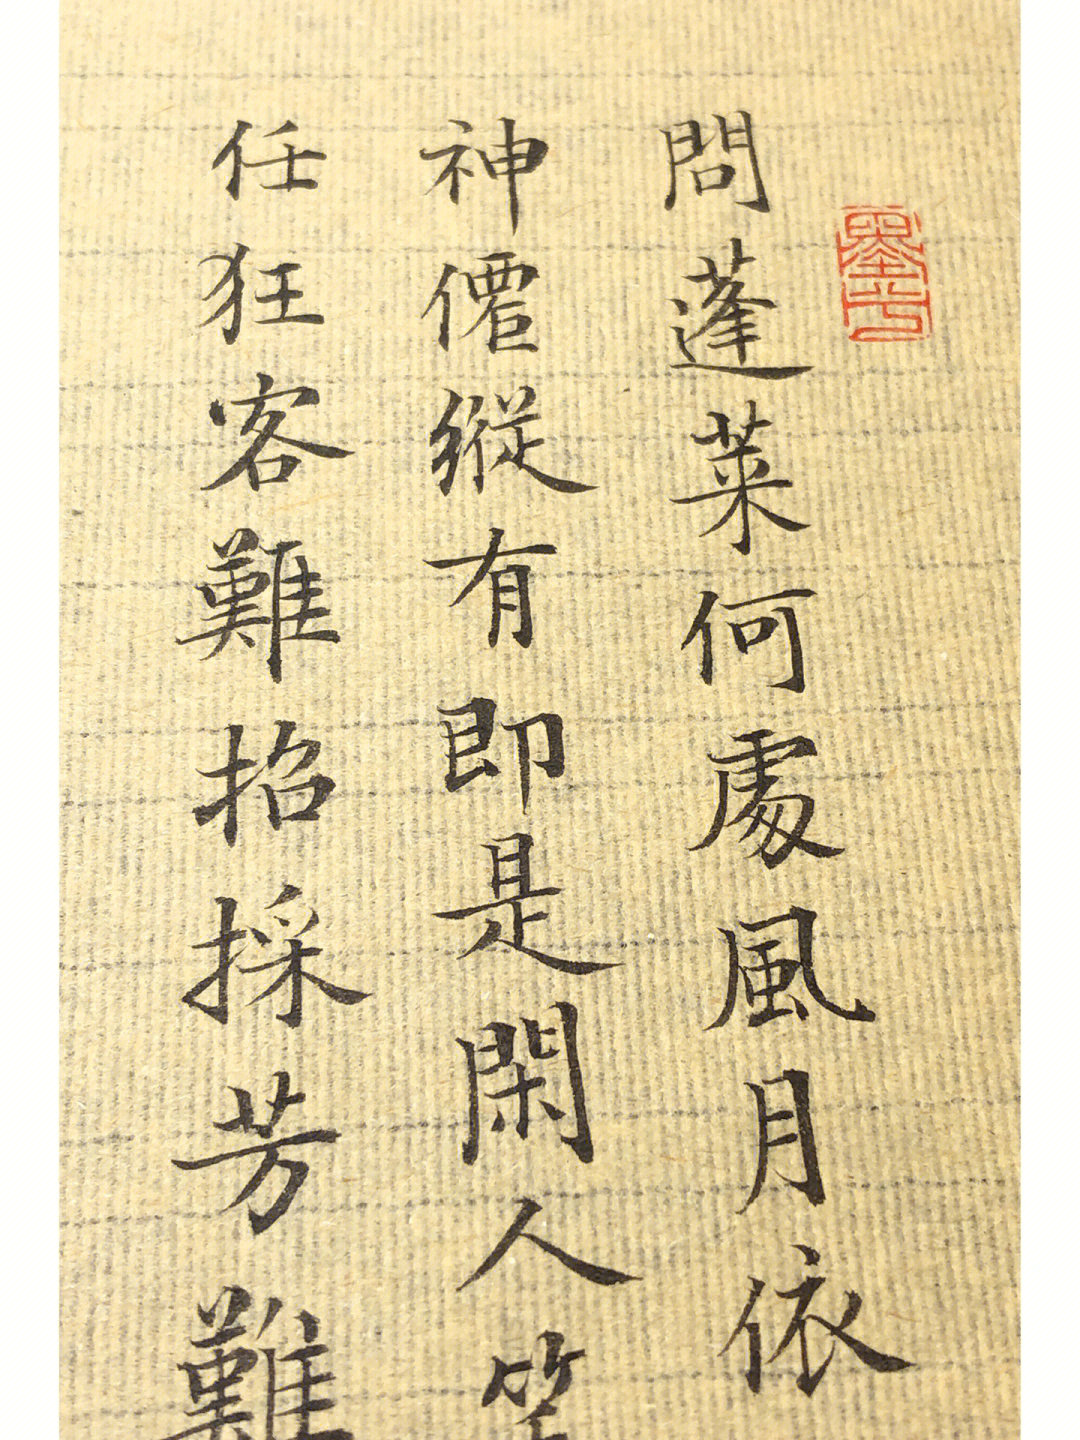 問蓬莱何處風月依
神僊縱有即是閑人笑
任狂客難招採芳難